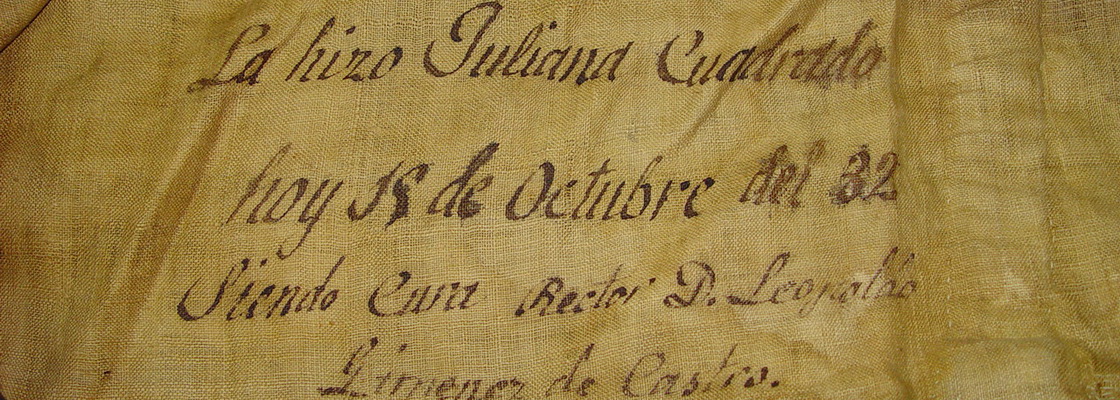 La hizo Juliana Cuadrado
hoy 18 de Octubre del 32
Siendo Cura Rector D. Leopoldo
Gimenez de Castro.